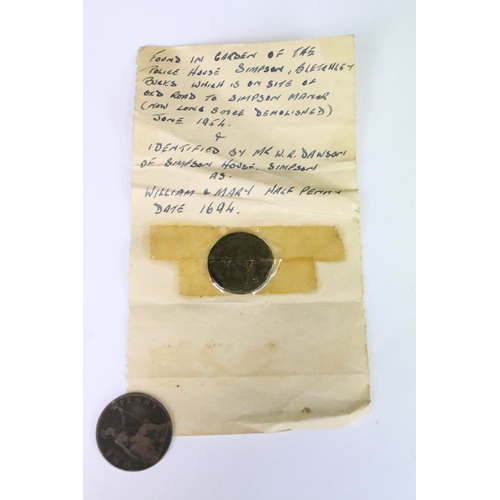 FOUND IN GARDEN OF THE
POLICE HOUSE SIMPSON, BLETCHLEY
BUCKS WHICH IS ON SITE OF
OLD ROAD TO SIMPSON MANOR
(NOW LONG SINCE DEMOLISHED)
JUNE 1954.
&
IDENTIFIED BY MR W.R. DAWSON
OF SIMPSON HOUSE, SIMPSON
AS.
WILLIAM & MARY HALF PENNY
DATE 1694.
PENNY